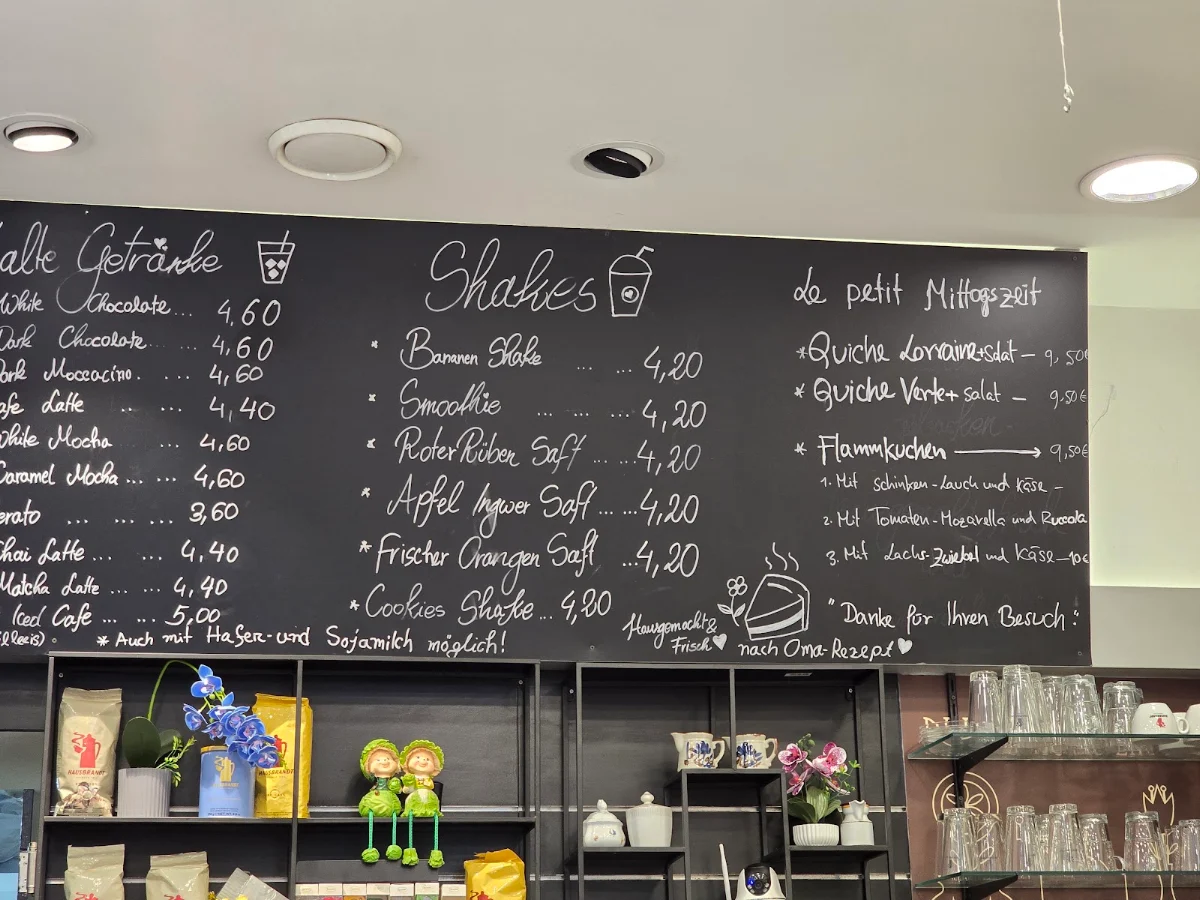 alte Getränke
White Chocolate... 4,60
Dark Chocolate... 4,60
Dark Moccacino. ... 4,60
Cafe Latte ... ... 4,40
White Mocha 4,60
Caramel Mocha ... ... 4,60
erato ... ... ... 3,60
Chai Latte ... ... 4,40
Matcha Latte ... ... 4,40
Iced Cafe ... ... 5,00
* Auch mit Hafer-und Sojamilch möglich!
Shakes
* Bananen Shake ... ... 4,20
* Smoothie ... ... ... 4,20
* Roter Rüben Saft ... ... 4,20
* Apfel Ingwer Saft ... ... 4,20
* Frischer Orangen Saft ... 4,20
* Cookies Shake ... 4,20
Hausgemacht &
Frisch
nach Oma-Rezept
Le petit Mittagszeit
* Quiche Lorraine + Salat — 9,50€
* Quiche Verte + salat — 9,50€
* Flammkuchen → 9,50€
1. Mit Schinken-Lauch und Käse -
2. Mit Tomaten-Mozarella und Ruccola
3. Mit Lachs-Zwiebel und Käse — 10€
"Danke für Ihren Besuch"
HAUSBRANDT